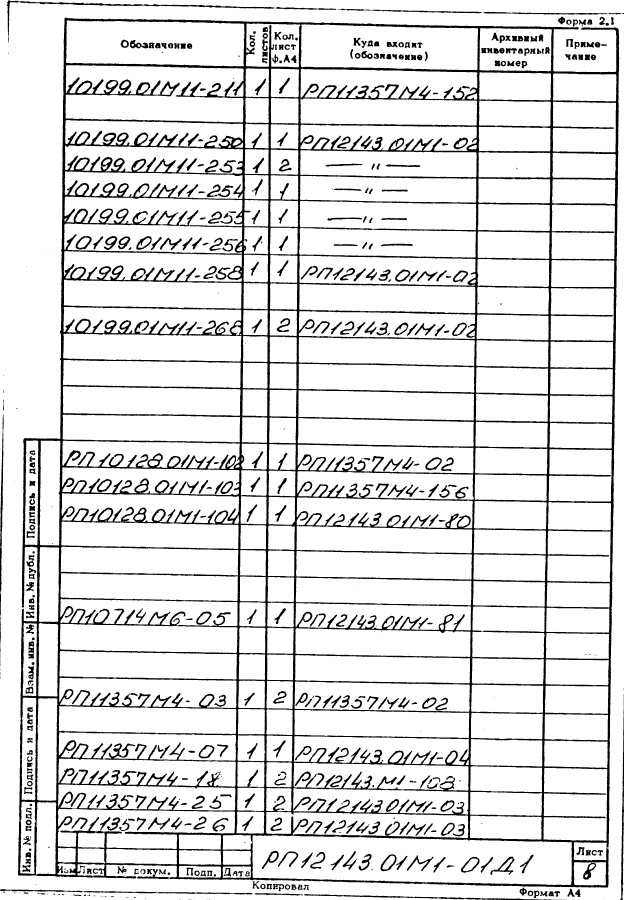 Форма 2.1
Обозначение | Кол. листов | Кол. лист ф.А4 | Куда входит (обозначение) | Архивный инвентарный номер | Примечание
10199.01М11-211 1 1 РП11357М4-152
10199.01М11-250 1 1 РП12143.01М1-02
10199.01М11-253 1 2 — " —
10199.01М11-254 1 1 — " —
10199.01М11-255 1 1 — " —
10199.01М11-256 1 1 — " —
10199.01М11-258 1 1 РП12143.01М1-02
10199.01М11-268 1 2 РП12143.01М1-02
РП10128.01М1-102 1 1 РП11357М4-02
РП10128.01М1-103 1 1 РП11357М4-156
РП10128.01М1-104 1 1 РП12143.01М1-80
РП10714М6-05 1 1 РП12143.01М1-81
РП11357М4-03 1 2 РП11357М4-02
РП11357М4-07 1 1 РП12143.01М1-04
РП11357М4-18 1 2 РП12143.М1-108
РП11357М4-25 1 2 РП12143.01М1-03
РП11357М4-26 1 2 РП12143.01М1-03
Подпись и дата
Инв. № дубл.
Взам. инв. №
Подпись и дата
Инв. № подл.
Изм Лист № докум. Подп. Дата
РП12143.01М1-01Д1
Лист
8
Копировал
Формат А4